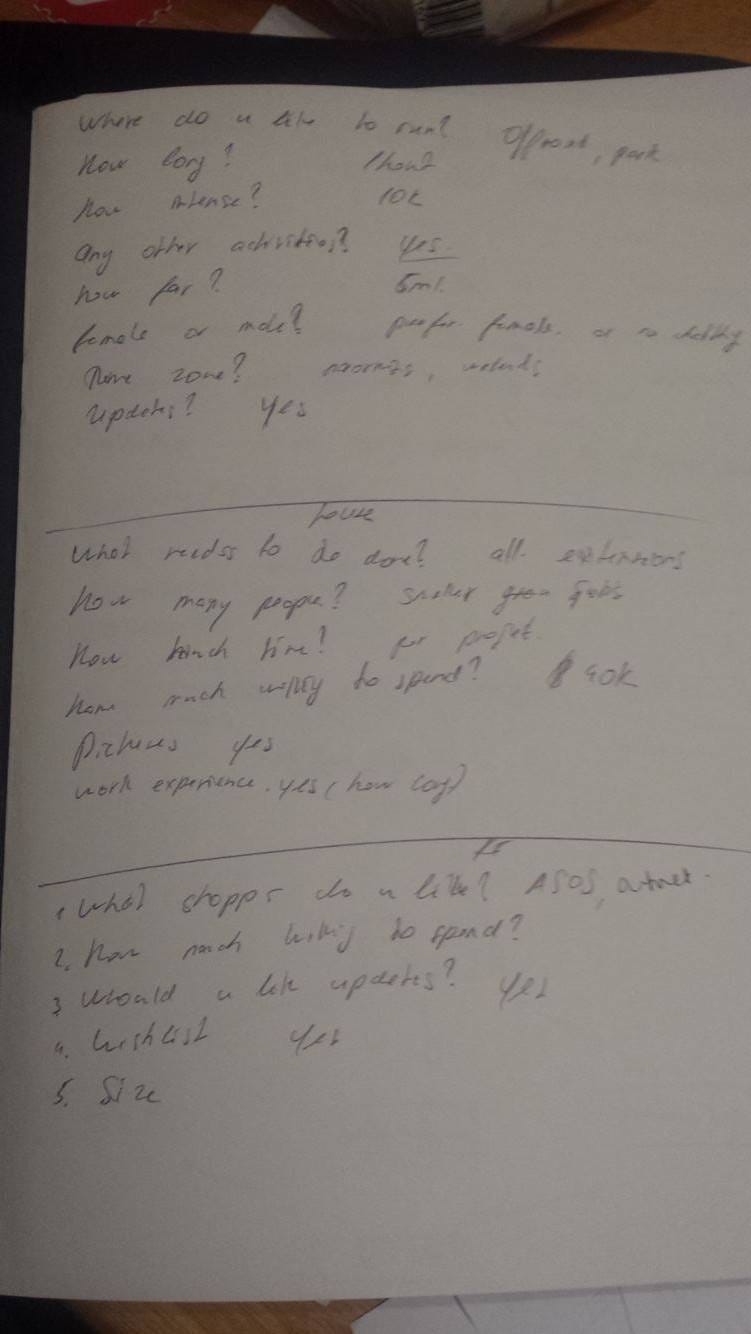 Where do u like to run? Offroad, park
How long? 1 hour
How intense? 10k
Any other activities? yes.
how far? 5ml.
female or male? prefer female. or no
Time zone? mornings, weekends
Updates? Yes
house
What needss to do done? all. extensions
How many people? smaller jobs
How much time? per projet.
How much willing to spend? 40k
Pictures yes
work experience. yes (how long)
1. What shopps do u like? ASOS,
2. How much willing to spend?
3 Would u like updates? yes
4. Wishlist yes
5. Size